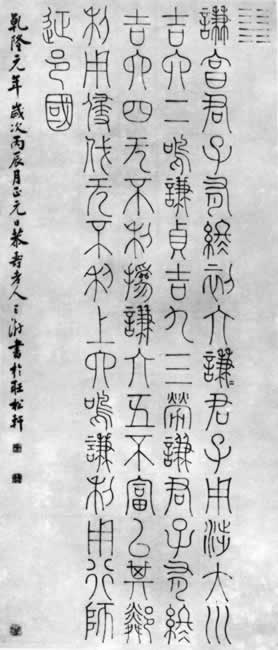 謙亨君子有終初六謙〻君子用涉大川
吉六二鳴謙貞吉九三勞謙君子有終
吉六四无不利撝謙六五不富以其鄰
利用侵伐无不利上六鳴謙利用行師
征邑國
乾隆元年歲次丙辰月正元日恭壽老人王澍書於松軒